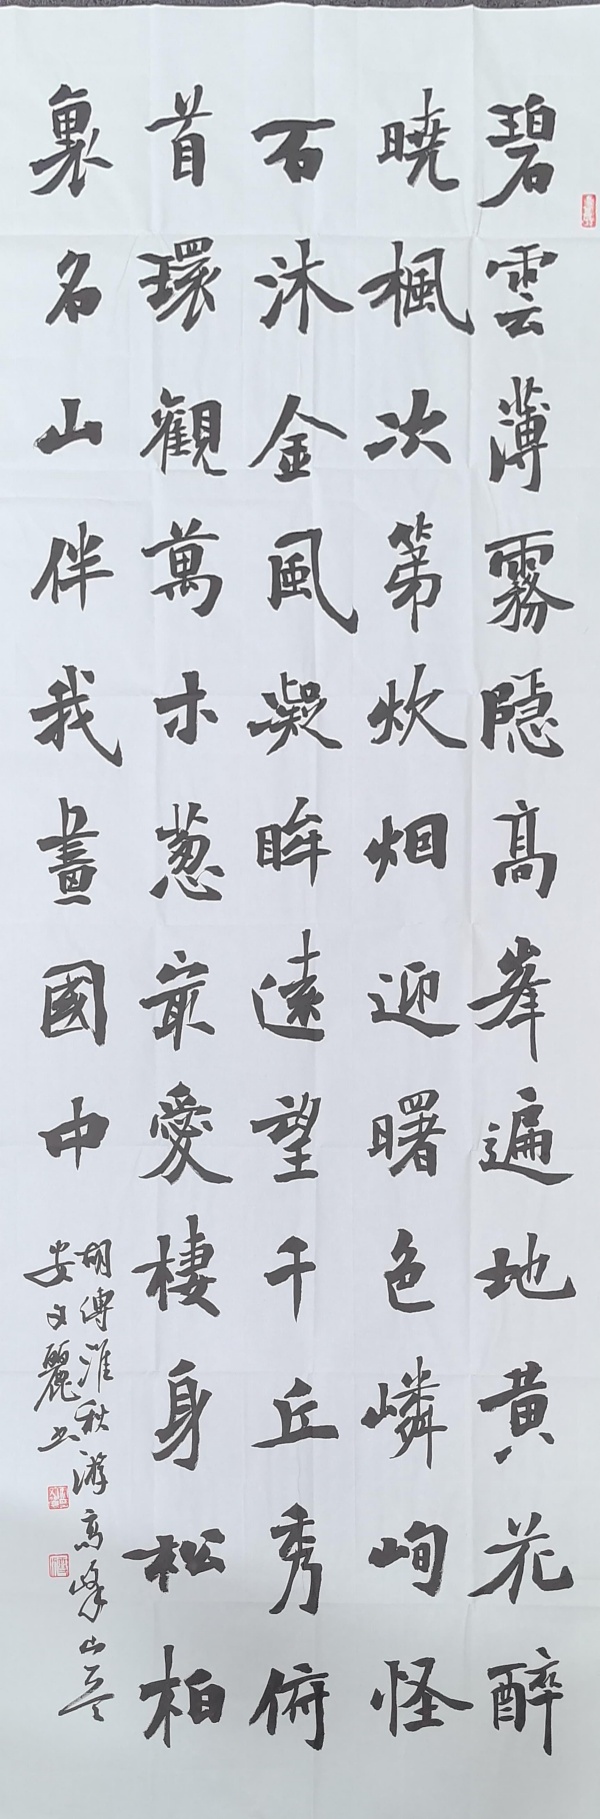 碧雲薄霧隱高峯遍地黃花醉
曉楓次第炊烟迎曙色嶙峋怪
石沐金風凝眸遠望千丘秀俯
首環觀萬木葱最愛棲身松柏
裏名山伴我畫國中
胡傳淮秋游高峯山
安文麗书